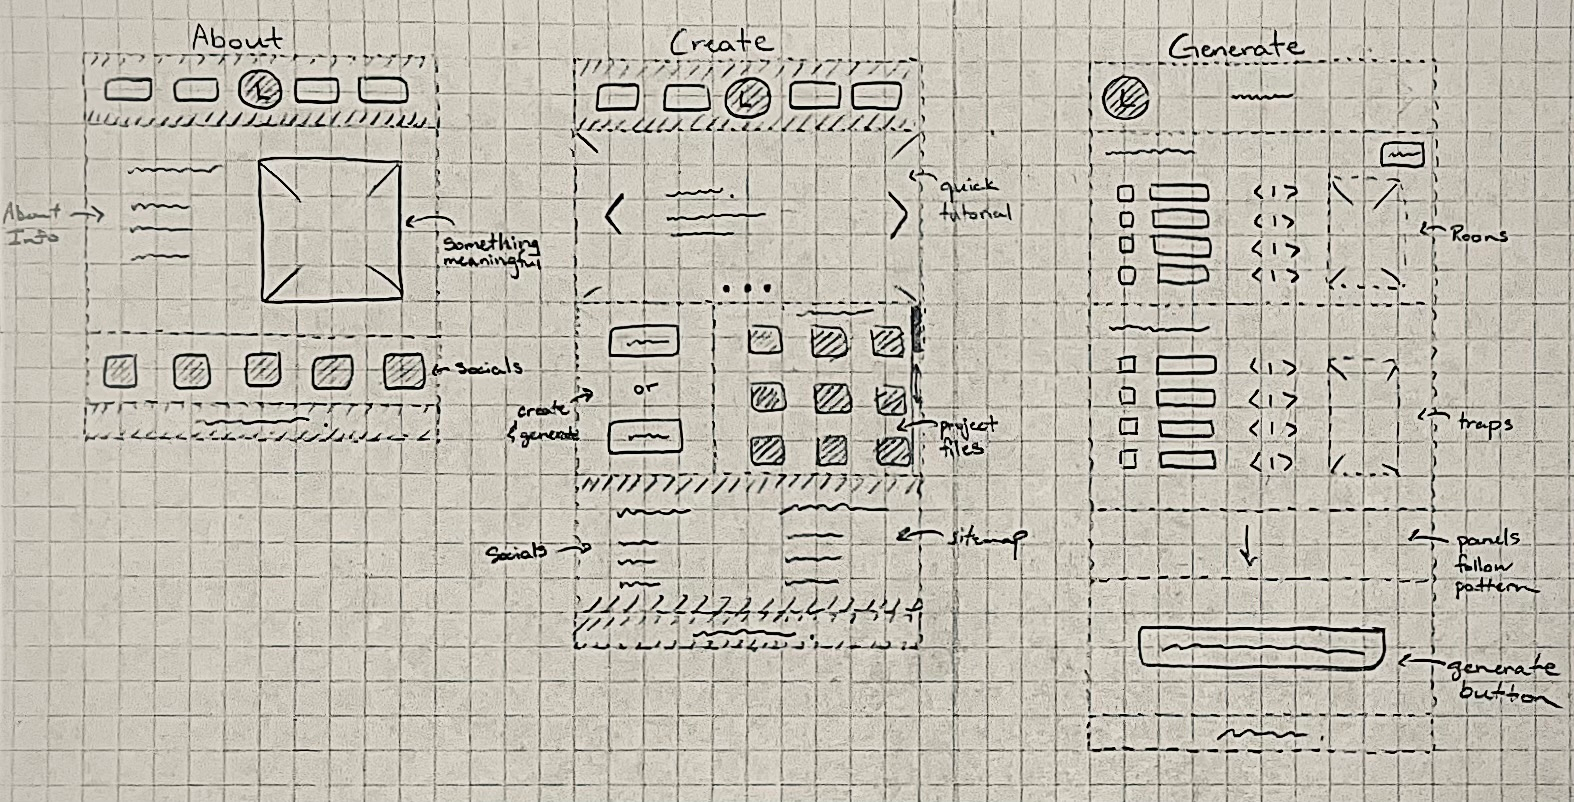 About
L
About
Info
Something
meaningful
Socials
Create
L
quick
tutorial
or
create
& generate
project
files
Socials
sitemap
Generate
L
< 1 >
< 1 >
< 1 >
< 1 >
Rooms
< 1 >
< 1 >
< 1 >
< 1 >
traps
panels
follow
pattern
generate
button